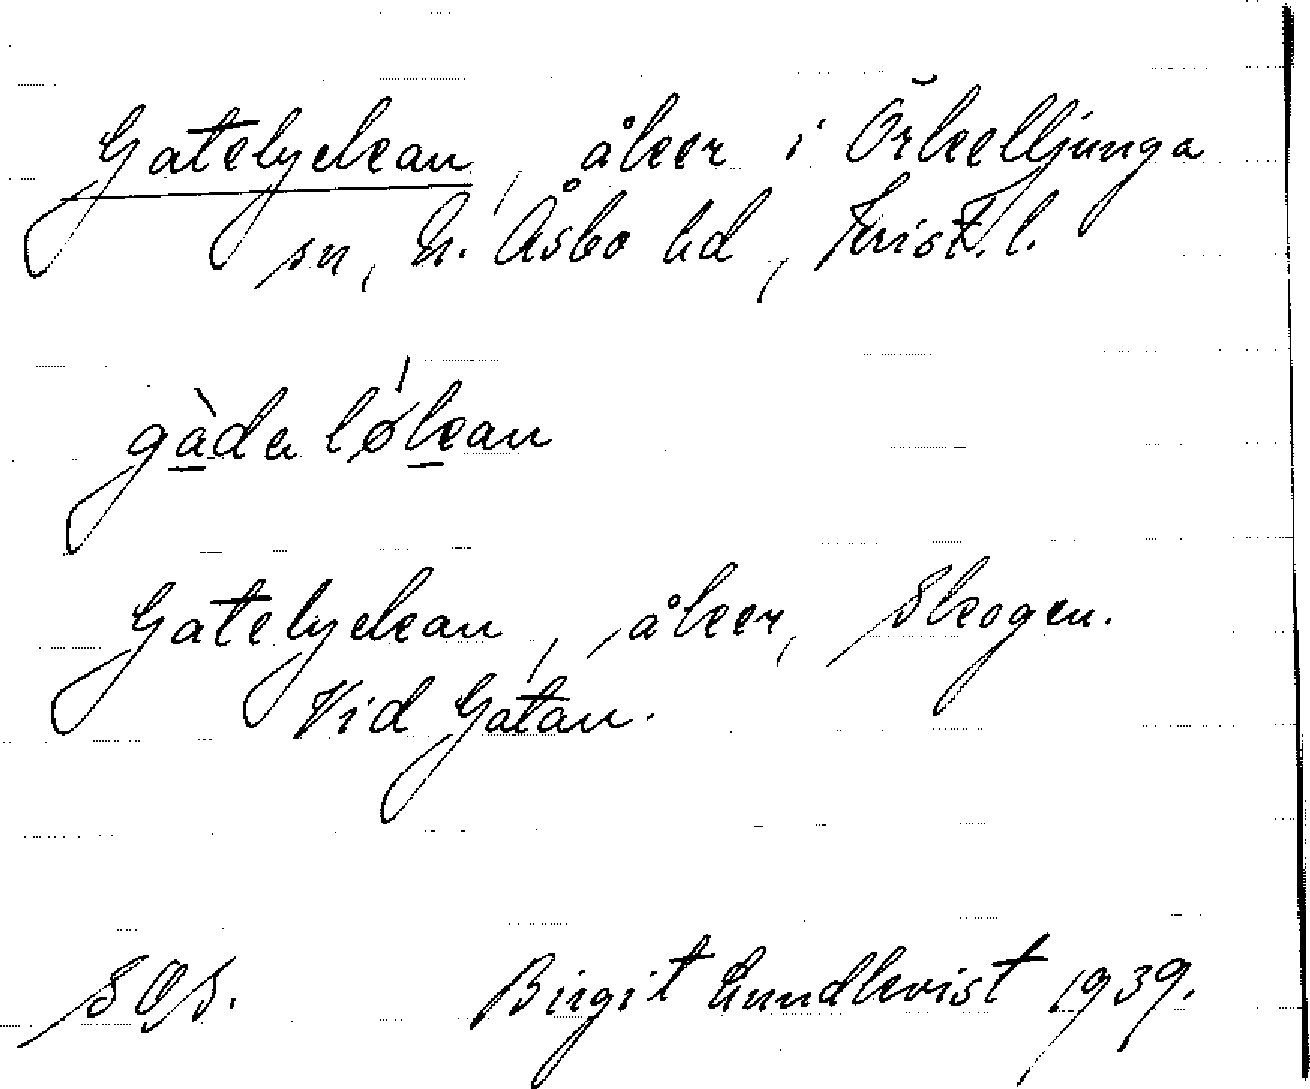 Gatelyckan, åker i Örkelljunga
sn, N. Åsbo hd, Krist. l.
gàda lǿkan
Gatelyckan, åker, Skogen.
Vid Gatan.
SOS. Birgit Lundkvist 1939.